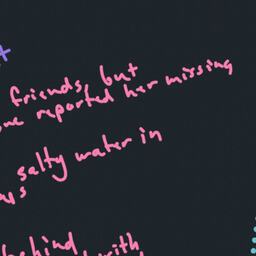 friends, but
reported her missing
salty water in
behind
with